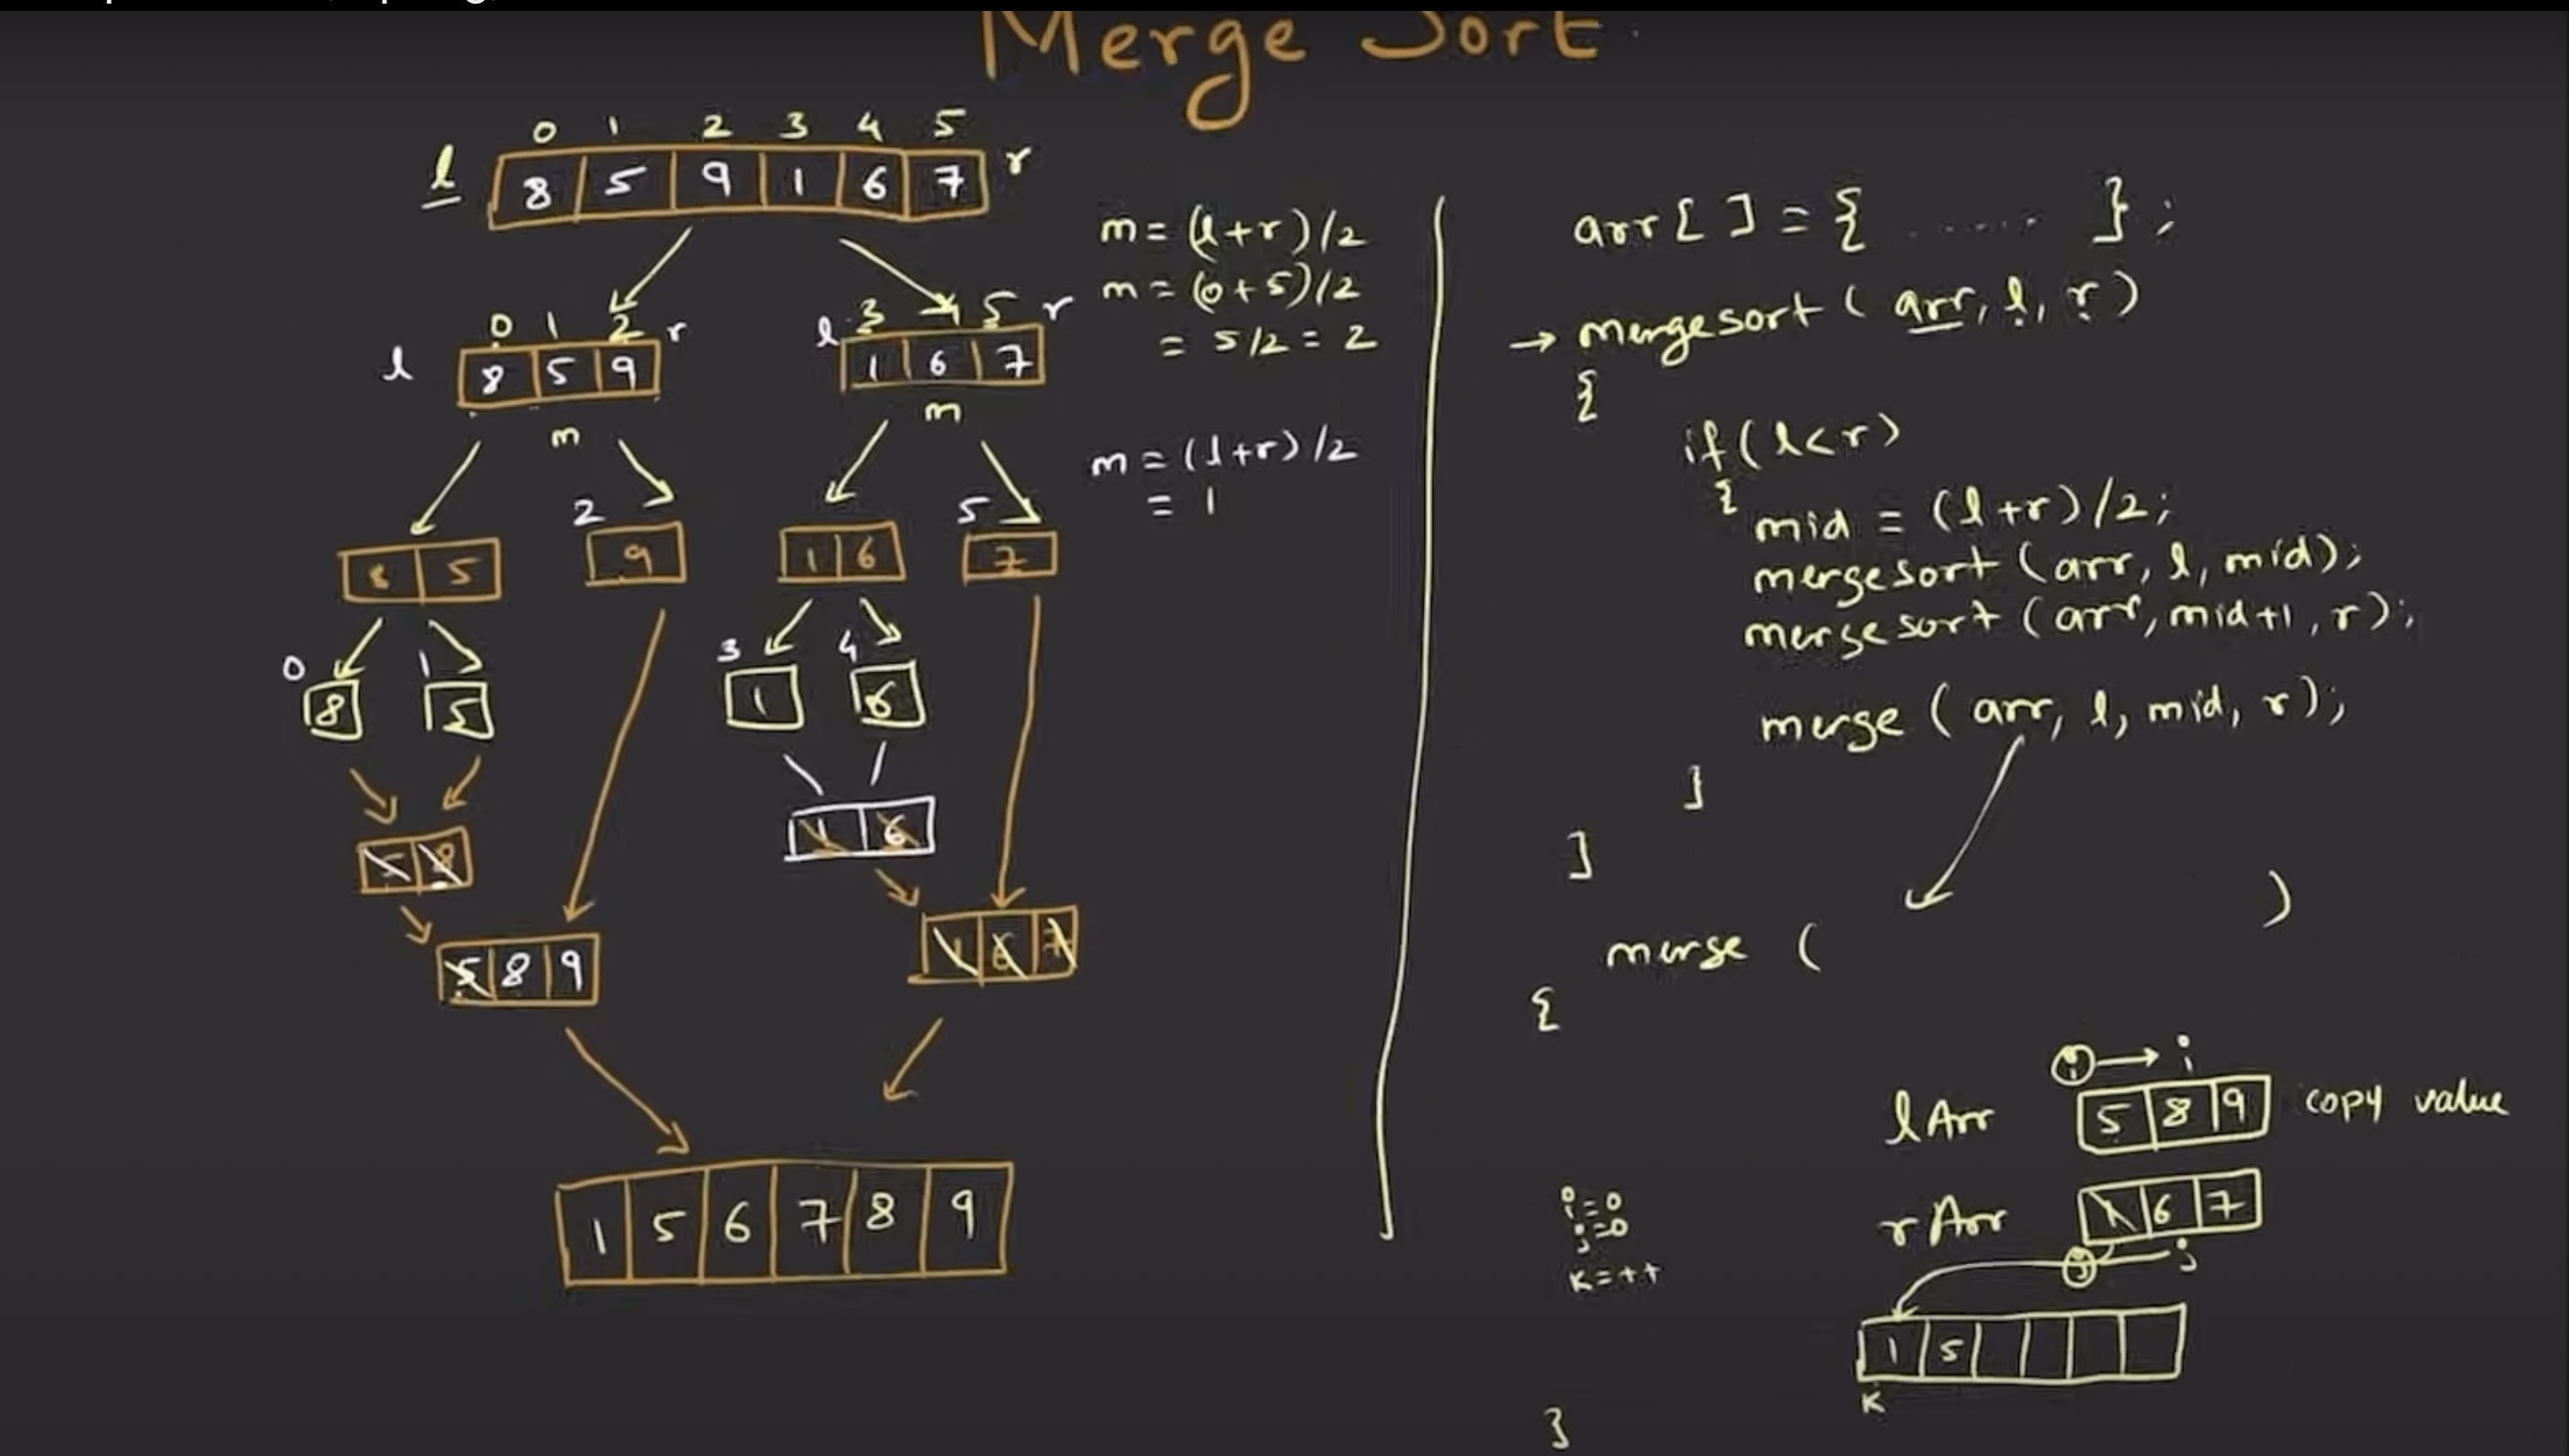 Merge Sort
0 1 2 3 4 5
l 8 5 9 1 6 7 r
m = (l+r)/2
m = (0+5)/2
= 5/2 = 2
0 1 2 r
l 8 5 9
m
l 3 4 5 r
1 6 7
m
m = (l+r)/2
= 1
8 5
2
9
1 6
5
7
0 1
8 5
3 4
1 6
5 8
1 6
5 8 9
1 6 7
1 5 6 7 8 9
arr[ ] = { ..... };
→ mergesort ( arr, l, r )
{
if ( l < r )
{
mid = (l+r)/2;
mergesort (arr, l, mid);
mergesort (arr, mid+1, r);
merge ( arr, l, mid, r );
}
}
merge ( )
{
i → i
lArr 5 8 9 copy value
i=0
j=0
k=++
rArr 1 6 7
j j
1 5
k
}